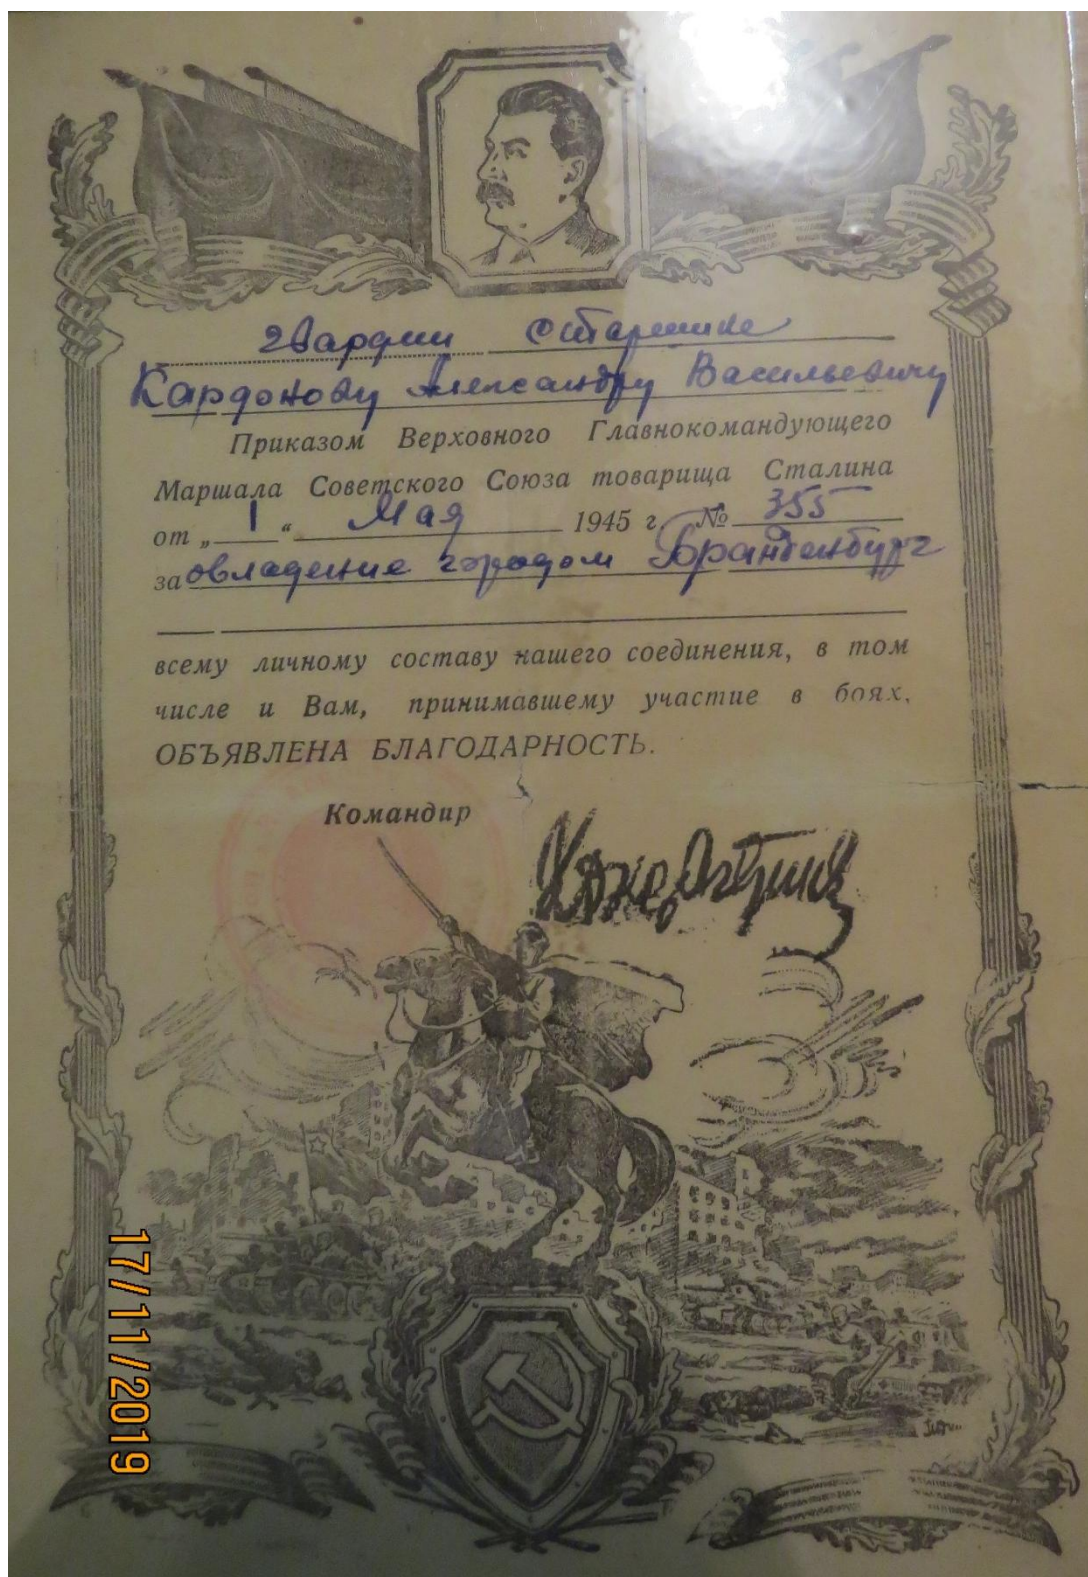 гвардии старшине
Кардонову Александру Васильевичу
Приказом Верховного Главнокомандующего
Маршала Советского Союза товарища Сталина
от „ 1 “ Мая 1945 г. № 355
за овладение городом Бранденбург
всему личному составу нашего соединения, в том
числе и Вам, принимавшему участие в боях,
ОБЪЯВЛЕНА БЛАГОДАРНОСТЬ.
Командир
17/11/2019